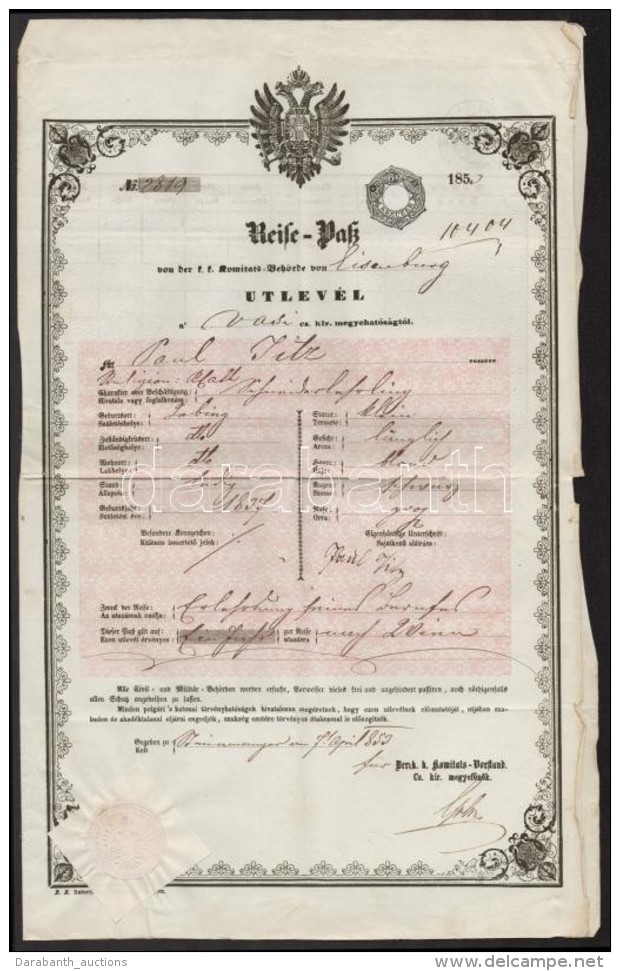 № 2819
185
Reise-Paß
10404
von der k. k. Komitats-Behörde von Eisenburg
UTLEVÉL
a' Vasi cs. kir. megyehatóságtól.
für Paul Titz
Religion: Kath
Charakter oder Beschäftigung: Schneiderlehrling
Hivatala vagy foglalkozása:
Geburtsort: Statur: klein
Születéshelye: Termete:
Zuständigkeitsort: Gesicht: länglich
Illetőséghelye: Arcza:
Wohnort: Haare: blond
Lakhelye: Haja:
Stand: ledig Augen: schwarz
Állapota: Szeme:
Geburtsjahr: 1837 Nase: groß
Születési éve: Orra:
Besondere Kennzeichen: Eigenhändige Unterschrift:
Különös ismertető jelek: Sajátkezű aláírása:
Paul
Zweck der Reise:
Az utazásnak czélja:
Dieser Paß gilt auf: Ein Jahr zur Reise nach Wien
Ezen utlevél érvényes: utazásra
Alle Civil- und Militär-Behörden werden ersucht, Vorweiser dieses frei und ungehindert passiren, auch nöthigenfalls
allen Schutz angedeihen zu lassen.
Minden polgári 's katonai törvényhatóságok hivatalosan megkéretnek, hogy ezen utlevélnek előmutatóját, utjában sza-
badon és akadéktalanul eljárni engedjék, szükség esetére törvényes ótalommal is elősegítsék.
Gegeben zu Steinamanger am 7 April 853
Kelt
für Der k. k. Komitats-Vorstand.
Cs. kir. megyefőnök.
darabanth
Darabanth_auctions
www.delcampe.net